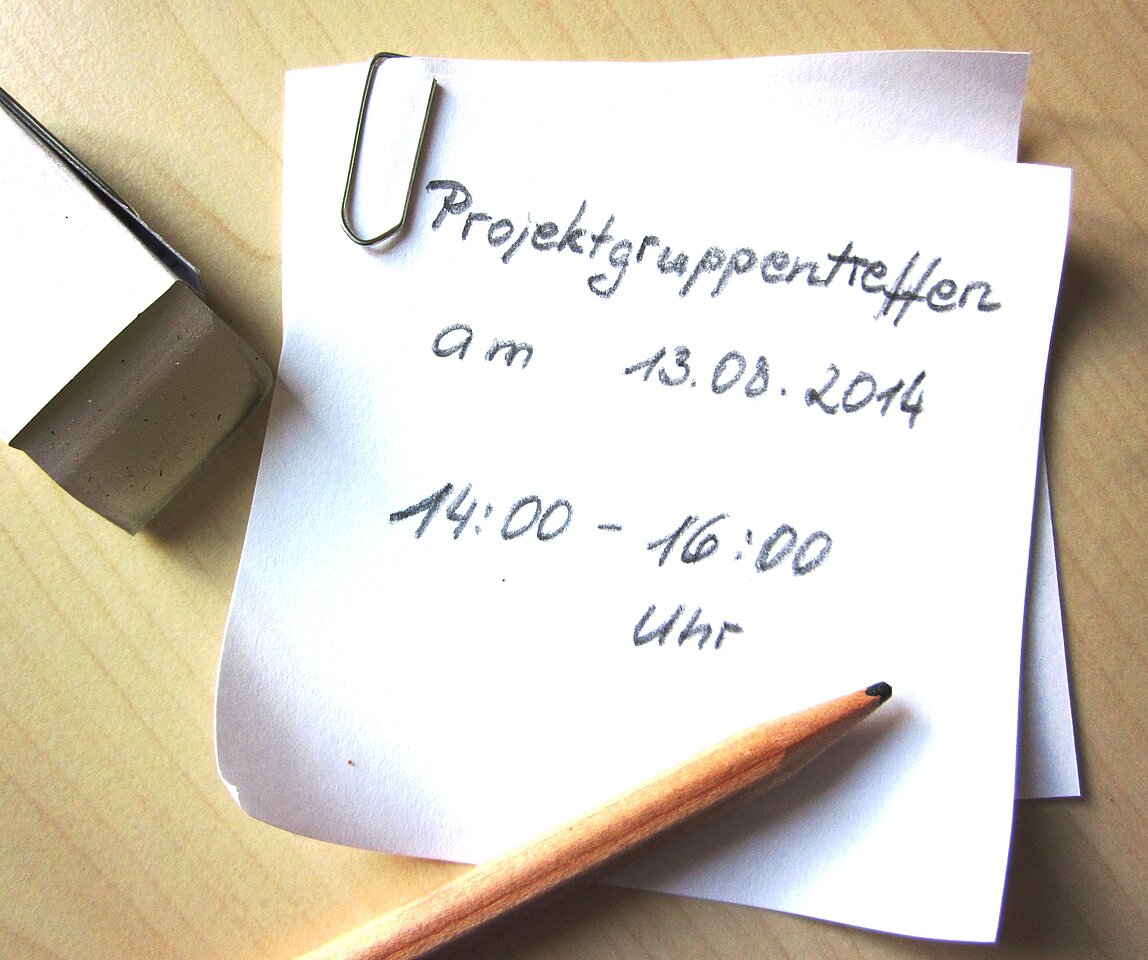 Projektgruppentreffen
am 13.08.2014
14:00 - 16:00
Uhr